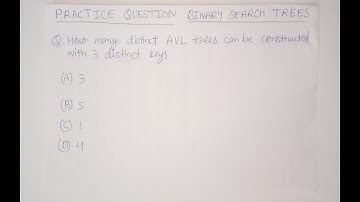 PRACTICE QUESTION BINARY SEARCH TREES
Q. How many distinct AVL trees can be constructed
with 3 distinct keys
(A) 3
(B) 5
(C) 1
(D) 4